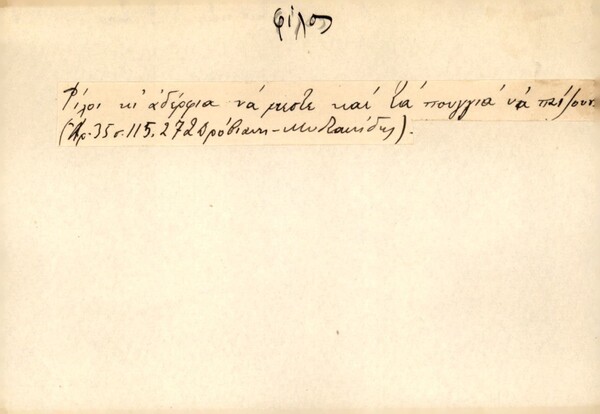 φίλος
Φίλοι κι' ἀδέρφια νά 'μεστε καί τά πουγγιά νά παίζουν.
(Ἀρ. 35 σ. 115, 272 Δρόβιανη - Μυστακίδης).